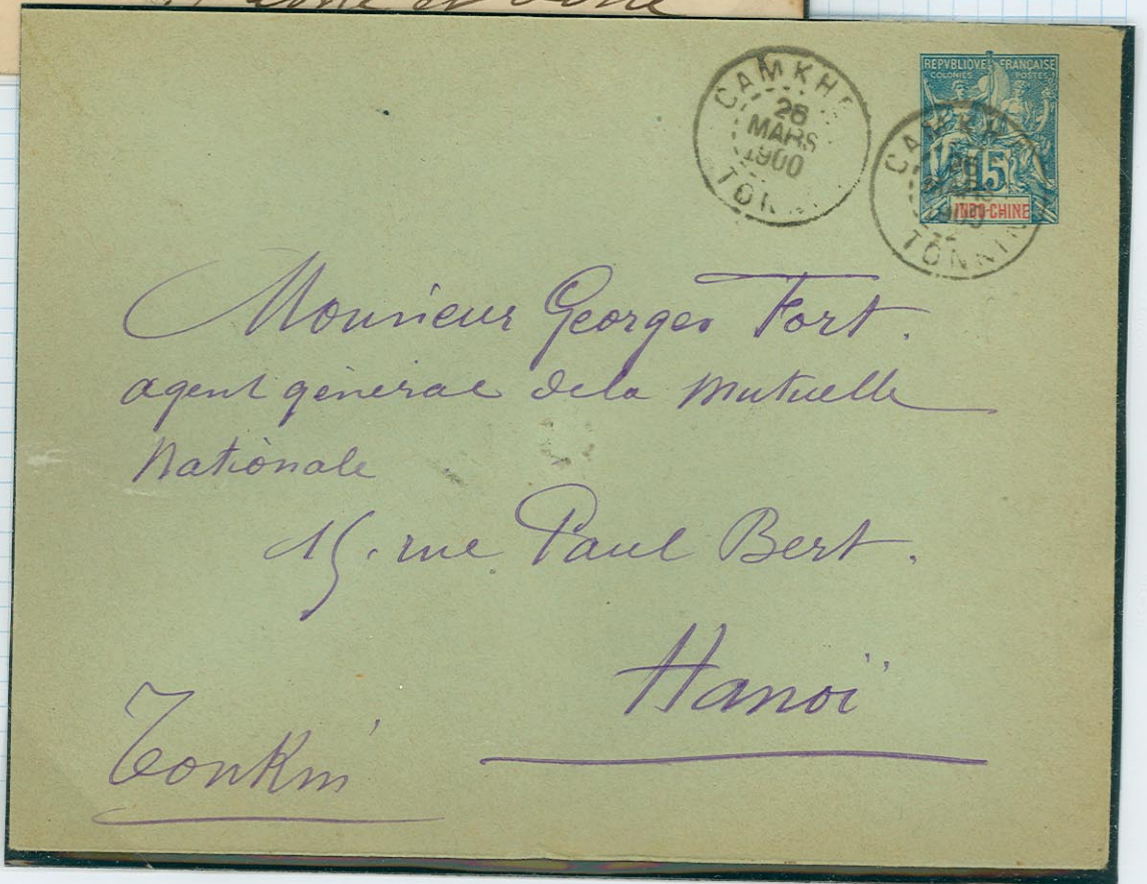 CAMKH
26
MARS
1900
TONK
REPVBLIQVE FRANÇAISE
COLONIES POSTES
15
INDO-CHINE
CAMKHE
MARS
1900
TONKIN
Monsieur Georges Fort.
agent général de la Mutuelle
Nationale
15. rue Paul Bert.
Hanoï
Tonkin